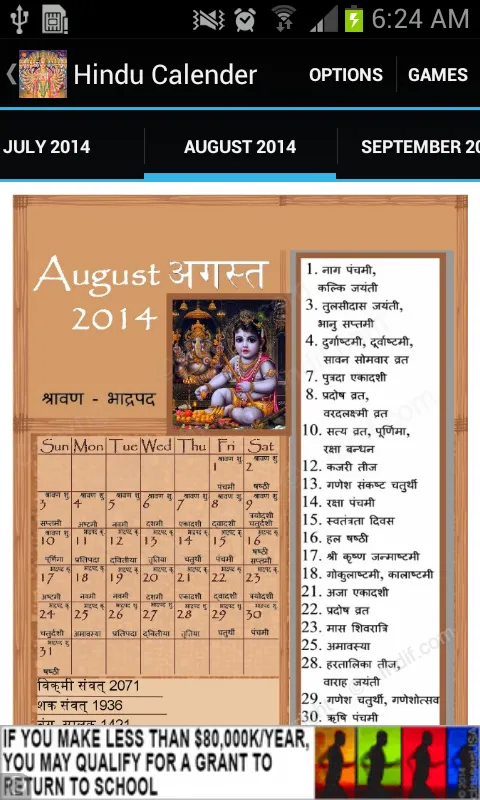 6:24 AM
Hindu Calender OPTIONS GAMES
JULY 2014 AUGUST 2014 SEPTEMBER 20
August अगस्त
2014
श्रावण - भाद्रपद
1. नाग पंचमी,
कल्कि जयंती
3. तुलसीदास जयंती,
भानु सप्तमी
4. दुर्गाष्टमी, दूर्वाष्टमी,
सावन सोमवार व्रत
7. पुत्रदा एकादशी
8. प्रदोष व्रत,
वरदलक्ष्मी व्रत
10. सत्य व्रत, पूर्णिमा,
रक्षा बन्धन
12. कजरी तीज
13. गणेश संकष्ट चतुर्थी
14. रक्षा पंचमी
15. स्वतंत्रता दिवस
16. हल षष्ठी
17. श्री कृष्ण जन्माष्टमी
18. गोकुलाष्टमी, कालाष्टमी
21. अजा एकादशी
22. प्रदोष व्रत
23. मास शिवरात्रि
25. अमावस्या
28. हरतालिका तीज,
वाराह जयंती
29. गणेश चतुर्थी, गणेशोत्सव
30. ऋषि पंचमी
Sun Mon Tue Wed Thu Fri Sat
श्रावण शु. श्रावण शु.
1 2
पंचमी षष्ठी
श्रावण शु. श्रावण शु. श्रावण शु. श्रावण शु. श्रावण शु. श्रावण शु. श्रावण शु.
3 4 5 6 7 8 9
सप्तमी अष्टमी नवमी दशमी एकादशी द्वादशी त्रयोदशी चतुर्दशी
10 11 12 13 14 15 16
पूर्णिमा प्रतिपदा द्वितीया तृतिया चतुर्थी पंचमी षष्ठी सप्तमी
17 18 19 20 21 22 23
अष्टमी नवमी नवमी दशमी एकादशी द्वादशी त्रयोदशी
24 25 26 27 28 29 30
चतुर्दशी अमावस्या प्रतिपदा द्वितीया तृतिया चतुर्थी पंचमी
31
षष्ठी
विक्रमी संवत् 2071
शक संवत् 1936
IF YOU MAKE LESS THAN $80,000K/YEAR,
YOU MAY QUALIFY FOR A GRANT TO
RETURN TO SCHOOL